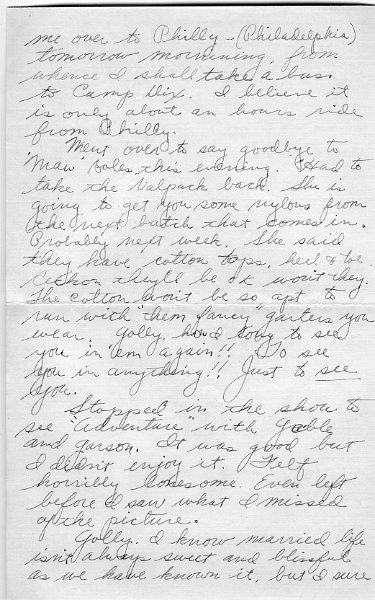 me over to Philly - (Philadelphia)
tomorrow mornining, from
whence I shall take a bus
to Camp Dix. I believe it
is only about an hours ride
from Philly.
Went over to say goodbye to
"Maw" Boles this evening. Had to
take the Valpack back. She is
going to get you some nylons from
the next batch that comes in.
Probably next week. She said
they have cotton tops, heel & toe.
Reckon they'll be ok won't they.
The cotton won't be so apt to
run with "them fancy" garters you
wear. Golly, how I long to see
you in 'em again!! To see
you in anything!! Just to see
you.
Stopped in the show to
see "Adventure" with Gable
and Garson. It was good but
I didn't enjoy it. Felt
horribly lonesome. Even left
before I saw what I missed
of the picture.
Golly, I know married life
isn't always sweet and blissful
as we have known it, but I sure